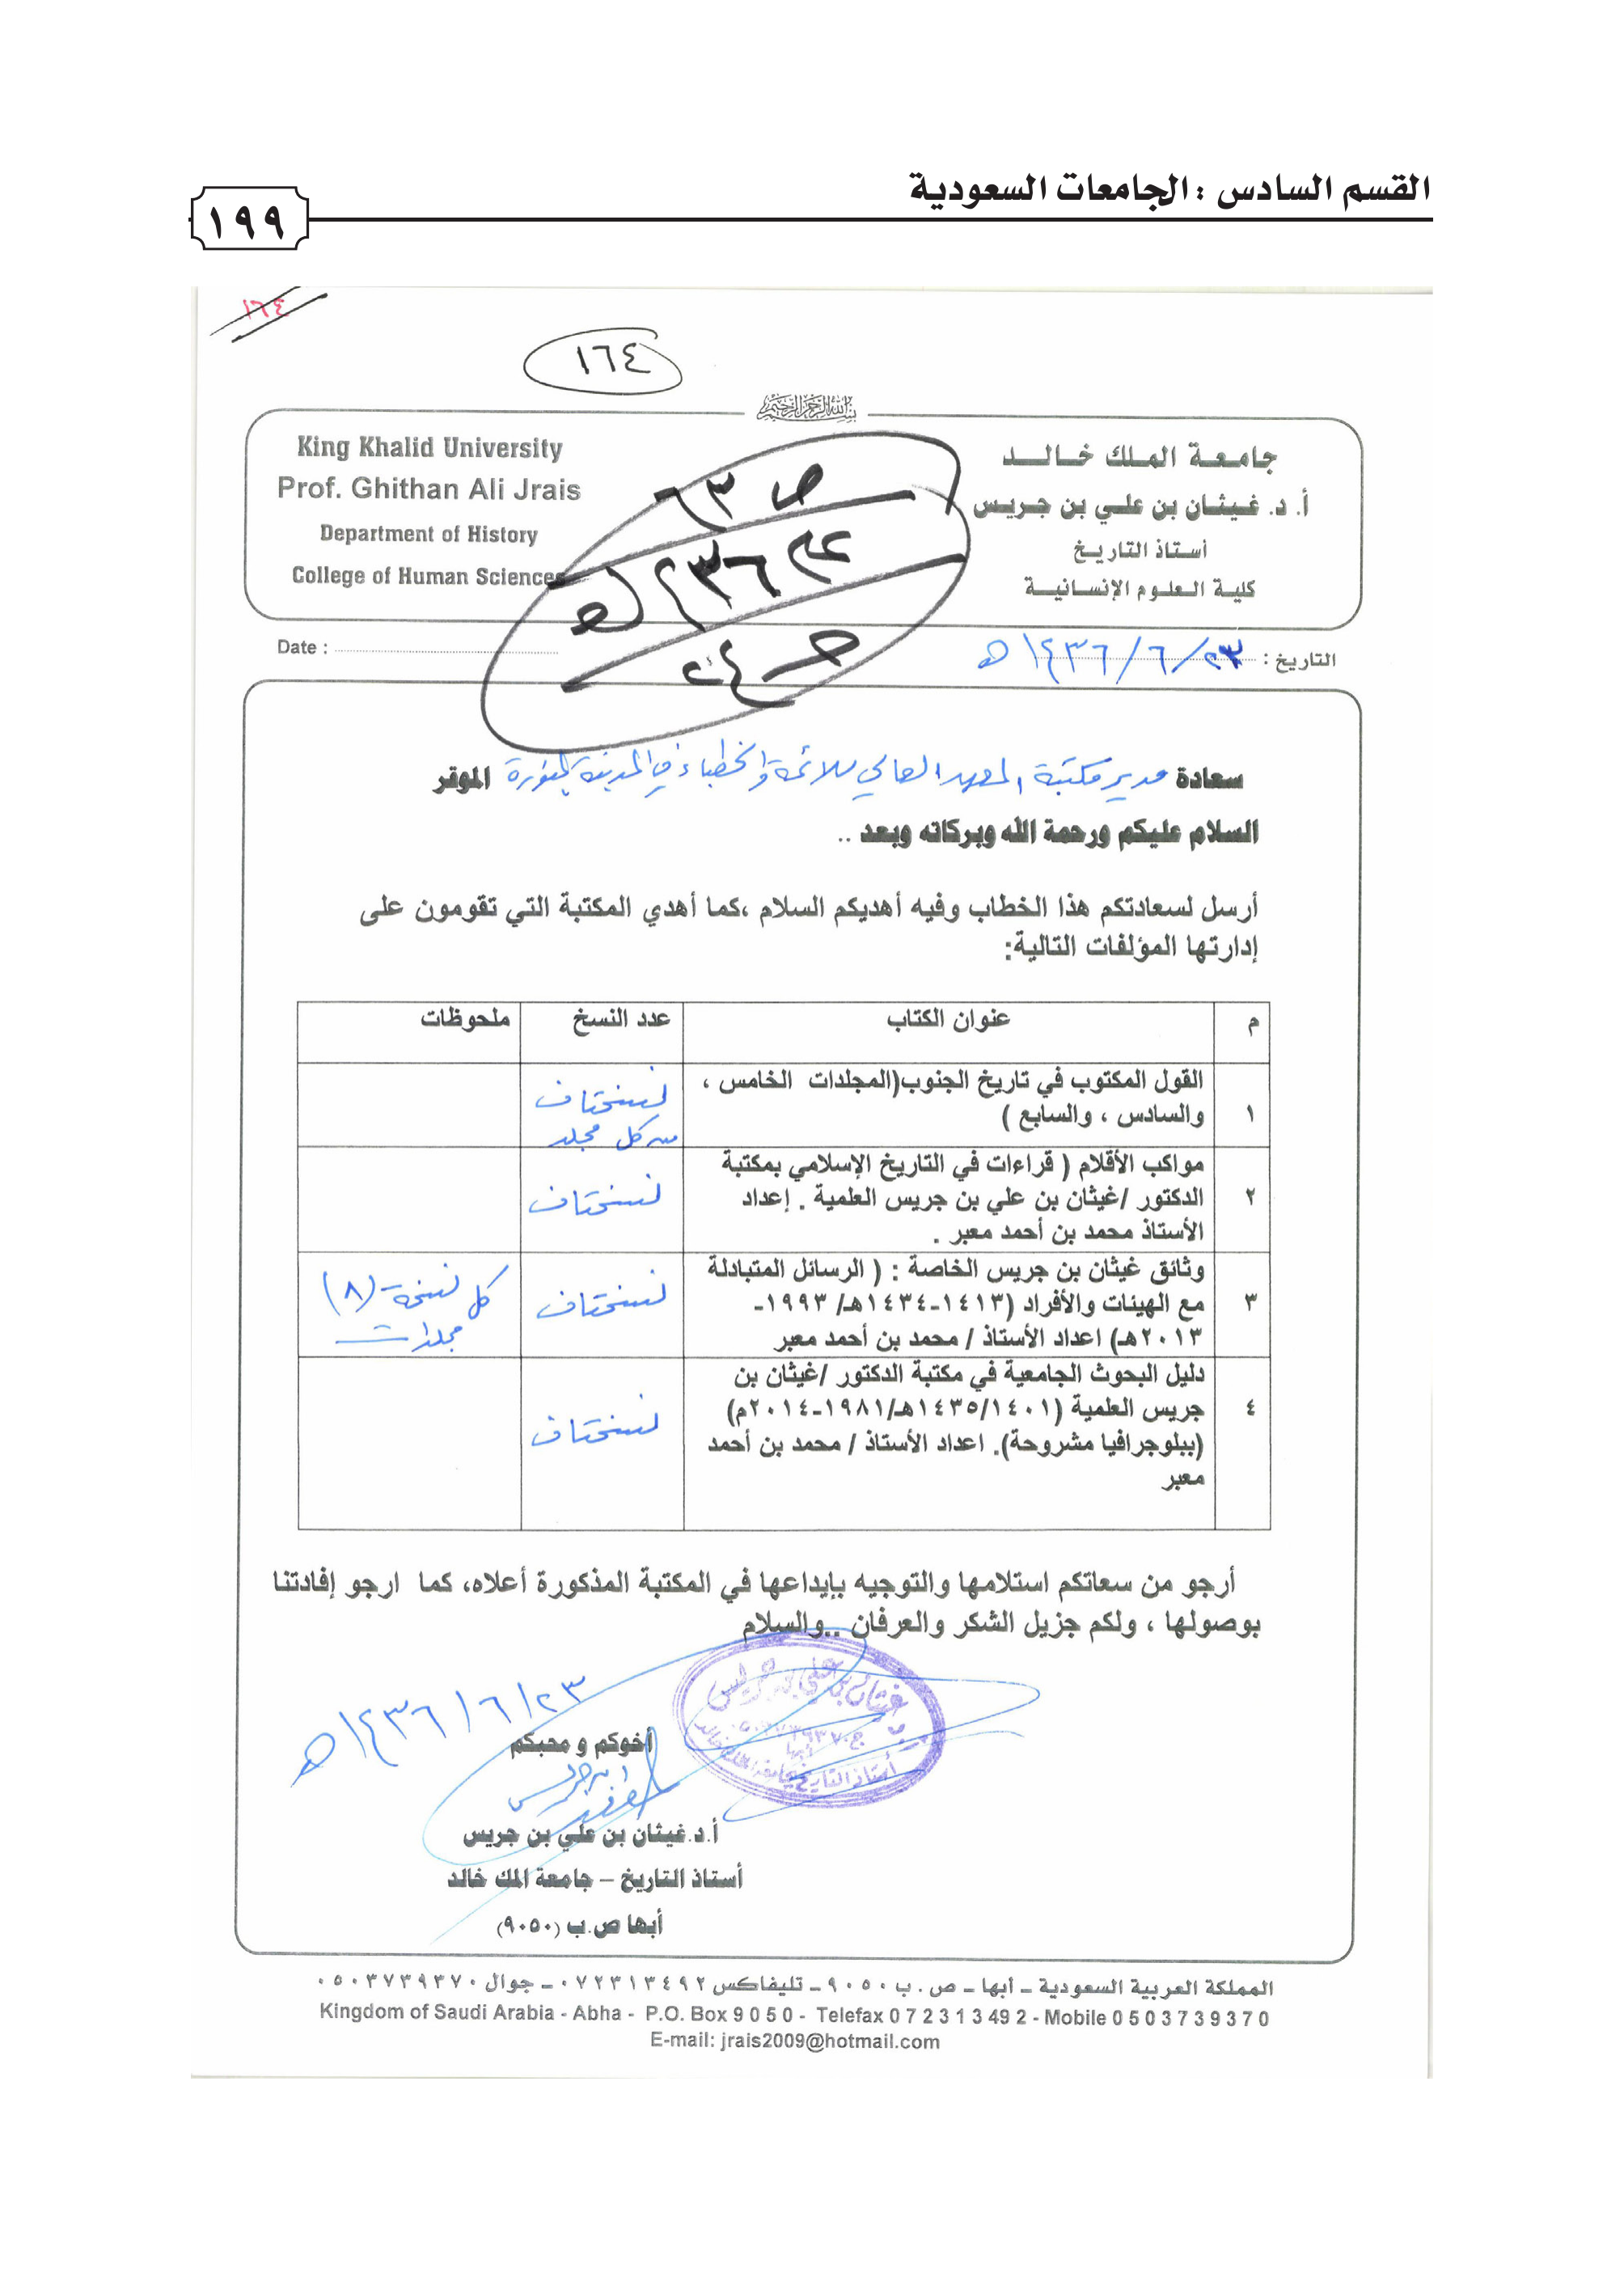 القسم السادس : الجامعات السعودية
١٩٩
١٦٤
١٦٤
بسم الله الرحمن الرحيم
King Khalid University
Prof. Ghithan Ali Jrais
Department of History
College of Human Sciences
جامعة الملك خالد
أ. د. غيثان بن علي بن جريس
أستاذ التاريخ
كلية العلوم الإنسانية
ص ٦٣
Date :
التاريخ : ٢٣/٦/١٤٣٦هـ
سعادة مدير مكتبة المعهد العالي للائمة والخطباء في المدينة المنورة الموقر
السلام عليكم ورحمة الله وبركاته وبعد ..
أرسل لسعادتكم هذا الخطاب وفيه أهديكم السلام ،كما أهدي المكتبة التي تقومون على
إدارتها المؤلفات التالية:
م عنوان الكتاب عدد النسخ ملحوظات
١ القول المكتوب في تاريخ الجنوب(المجلدات الخامس ،
والسادس ، والسابع )
نسختان
من كل مجلد
٢ مواكب الأقلام ( قراءات في التاريخ الإسلامي بمكتبة
الدكتور /غيثان بن علي بن جريس العلمية . إعداد
الأستاذ محمد بن أحمد معبر .
نسختان
٣ وثائق غيثان بن جريس الخاصة : ( الرسائل المتبادلة
مع الهيئات والأفراد (١٤١٣-١٤٣٤هـ/ ١٩٩٣-
٢٠١٣هـ) اعداد الأستاذ / محمد بن أحمد معبر
نسختان
كل نسخة (٨)
مجلدات
٤ دليل البحوث الجامعية في مكتبة الدكتور /غيثان بن
جريس العلمية (١٤٣٥/١٤٠١هـ/١٩٨١-٢٠١٤م)
(ببلوجرافيا مشروحة). اعداد الأستاذ / محمد بن أحمد
معبر
نسختان
أرجو من سعاتكم استلامها والتوجيه بإيداعها في المكتبة المذكورة أعلاه، كما ارجو إفادتنا
بوصولها ، ولكم جزيل الشكر والعرفان ..والسلام
٢٣/٦/١٤٣٦هـ
أخوكم و محبكم
أ.د.غيثان بن علي بن جريس
أستاذ التاريخ – جامعة الملك خالد
أبها ص.ب (٩٠٥٠)
المملكة العربية السعودية ـ أبها ـ ص . ب ٩٠٥٠ ـ تليفاكس ٠٧٢٣١٣٤٩٢ ـ جوال ٠٥٠٣٧٣٩٣٧٠
Kingdom of Saudi Arabia - Abha - P.O. Box 9 0 5 0 - Telefax 0 7 2 3 1 3 49 2 - Mobile 0 5 0 3 7 3 9 3 7 0
E-mail: jrais2009@hotmail.com